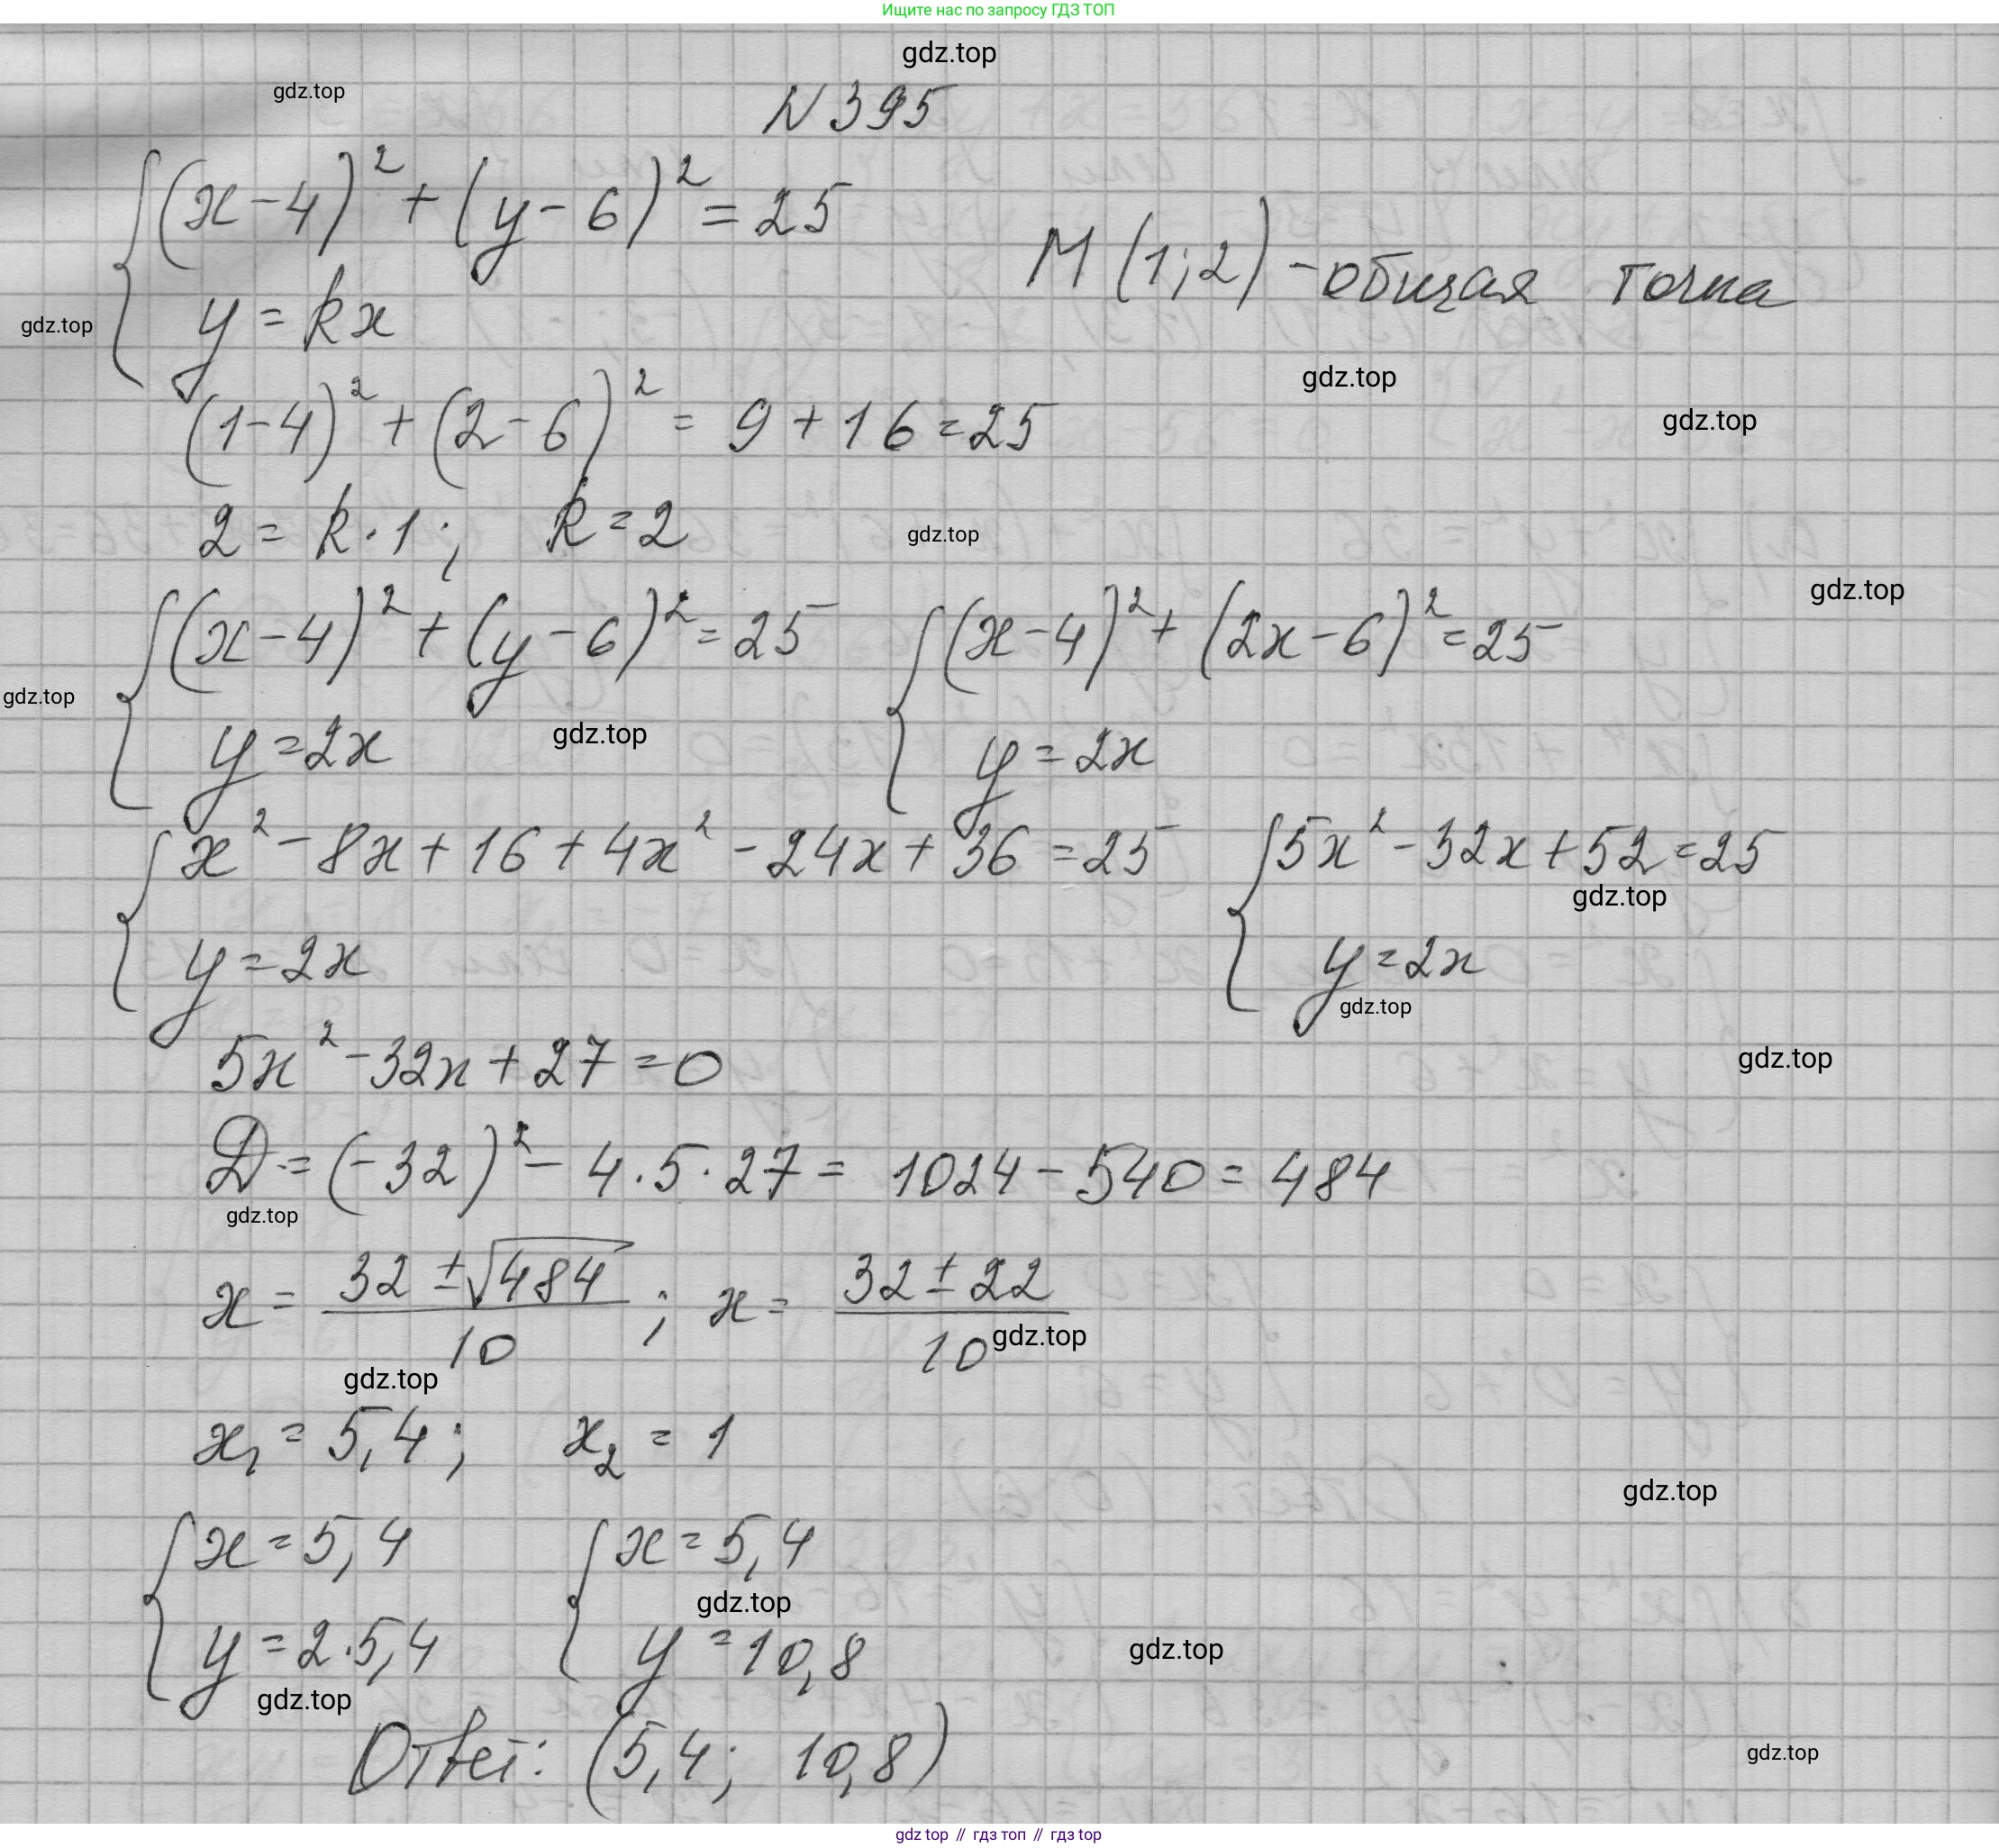 Ищите нас по запросу ГДЗ ТОП
gdz.top
gdz.top
N 395
(x-4)² + (y-6)² = 25
M (1; 2) - общая точка
y = kx
gdz.top
gdz.top
(1-4)² + (2-6)² = 9 + 16 = 25
gdz.top
2 = k · 1; k = 2
gdz.top
gdz.top
(x-4)² + (y-6)² = 25 (x-4)² + (2x-6)² = 25
gdz.top
y = 2x gdz.top y = 2x
x² - 8x + 16 + 4x² - 24x + 36 = 25 5x² - 32x + 52 = 25
gdz.top
y = 2x y = 2x
gdz.top
5x² - 32x + 27 = 0
gdz.top
D = (-32)² - 4 · 5 · 27 = 1024 - 540 = 484
gdz.top
x = (32 ± √484)/10; x = (32 ± 22)/10
gdz.top
gdz.top
x₁ = 5,4; x₂ = 1
gdz.top
x = 5,4 x = 5,4
gdz.top
y = 2·5,4 y = 10,8
gdz.top
gdz.top
Ответ: (5,4; 10,8)
gdz.top
gdz top // гдз топ // гдз top